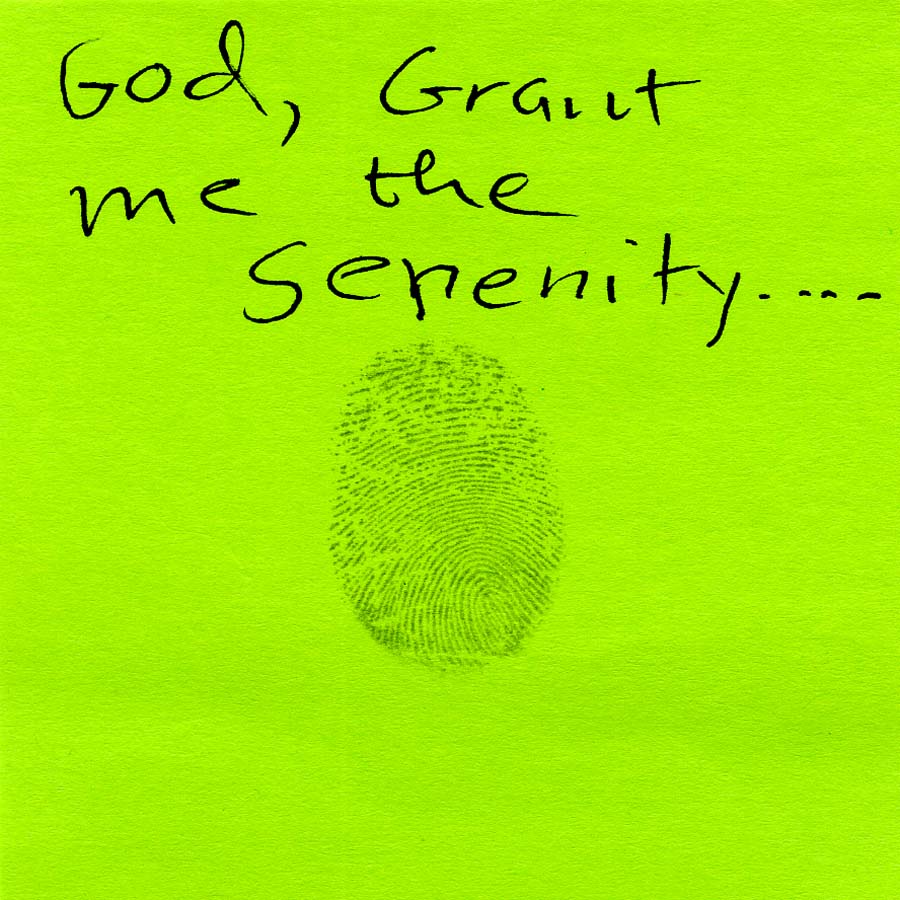 God, Grant
me the
serenity....